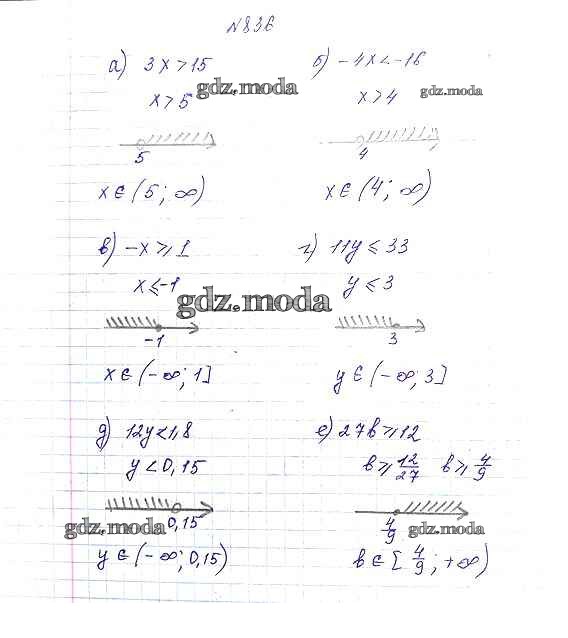 №836
а) 3x > 15
x > 5
gdz.moda
5
x ∈ (5; ∞)
б) -4x < -16
x > 4
gdz.moda
4
x ∈ (4; ∞)
в) -x ⩾ 1
x ⩽ -1
gdz.moda
-1
x ∈ (-∞; 1]
г) 11y ⩽ 33
y ⩽ 3
3
y ∈ (-∞; 3]
д) 12y < 1,8
y < 0,15
0,15
gdz.moda
y ∈ (-∞; 0,15)
е) 27b ⩾ 12
b ⩾ 12/27 b ⩾ 4/9
4/9
gdz.moda
b ∈ [4/9; +∞)